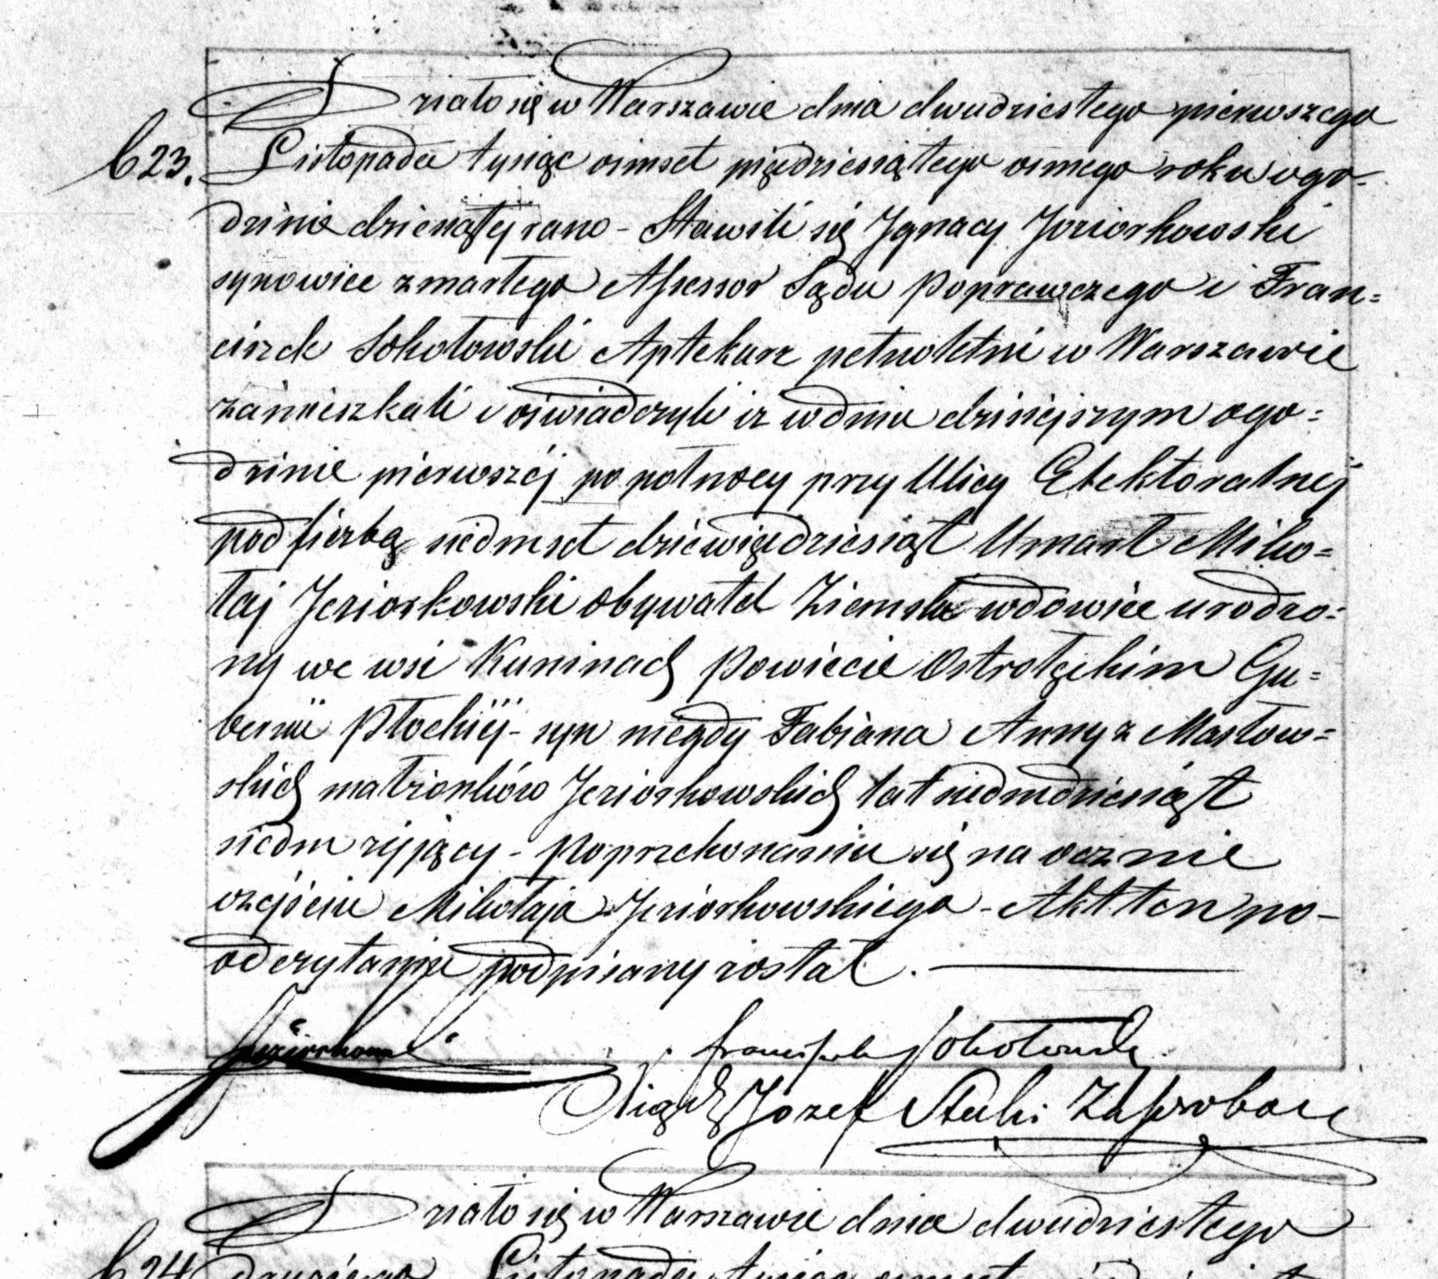 Działo się w Warszawie dnia dwudziestego pierwszego
623. Listopada tysiąc ośmset piędziesiątego osmego roku o go-
dzinie dziesiątéj rano - Stawili się Jgnacy Jeziorkowski
synowiec zmarłego Assessor Sądu Poprawczego i Fran=
ciszek Sokołowski Aptekarz pełnoletni w Warszawie
zamieszkali i oświadczyli iż w dniu dzisiejszym o go=
dzinie pierwszéj po północy przy Ulicy Elektoralnéj
pod liczbą siedmset dziewiędziesiąt Umarł Miko=
łaj Jeziorkowski obywatel Ziemski wdowiec urodzo=
ny we wsi Kuninach Powiecie Ostrołęckim Gu=
bernii Płockiéj - syn niegdy Fabiana Anny z Masłow=
skich małżonków Jeziorkowskich lat siedmdziesiąt
siedm żyjący - Po przekonaniu się na ocznie
o zejściu Mikołaja Jeziorkowskiego - Akt ten po-
odczytaniu podpisany został.
Jeziorkowski Franciszek Sokołowski
Xiądz Józef Stecki Za Proboszcz
Działo się w Warszawie dnia dwudziestego
624 drugiego Listopada tysiąc ośmset